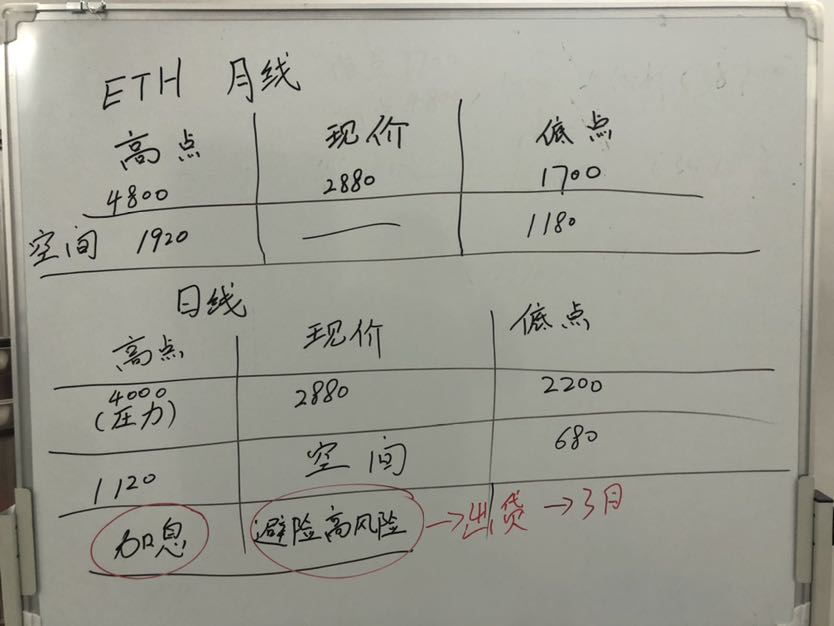 ETH 月线
高点 现价 低点
4800 2880 1700
空间 1920 1180
日线
高点 现价 低点
4000 2880 2200
(压力)
1120 空间 680
加息 避险高风险 →出货 →3月